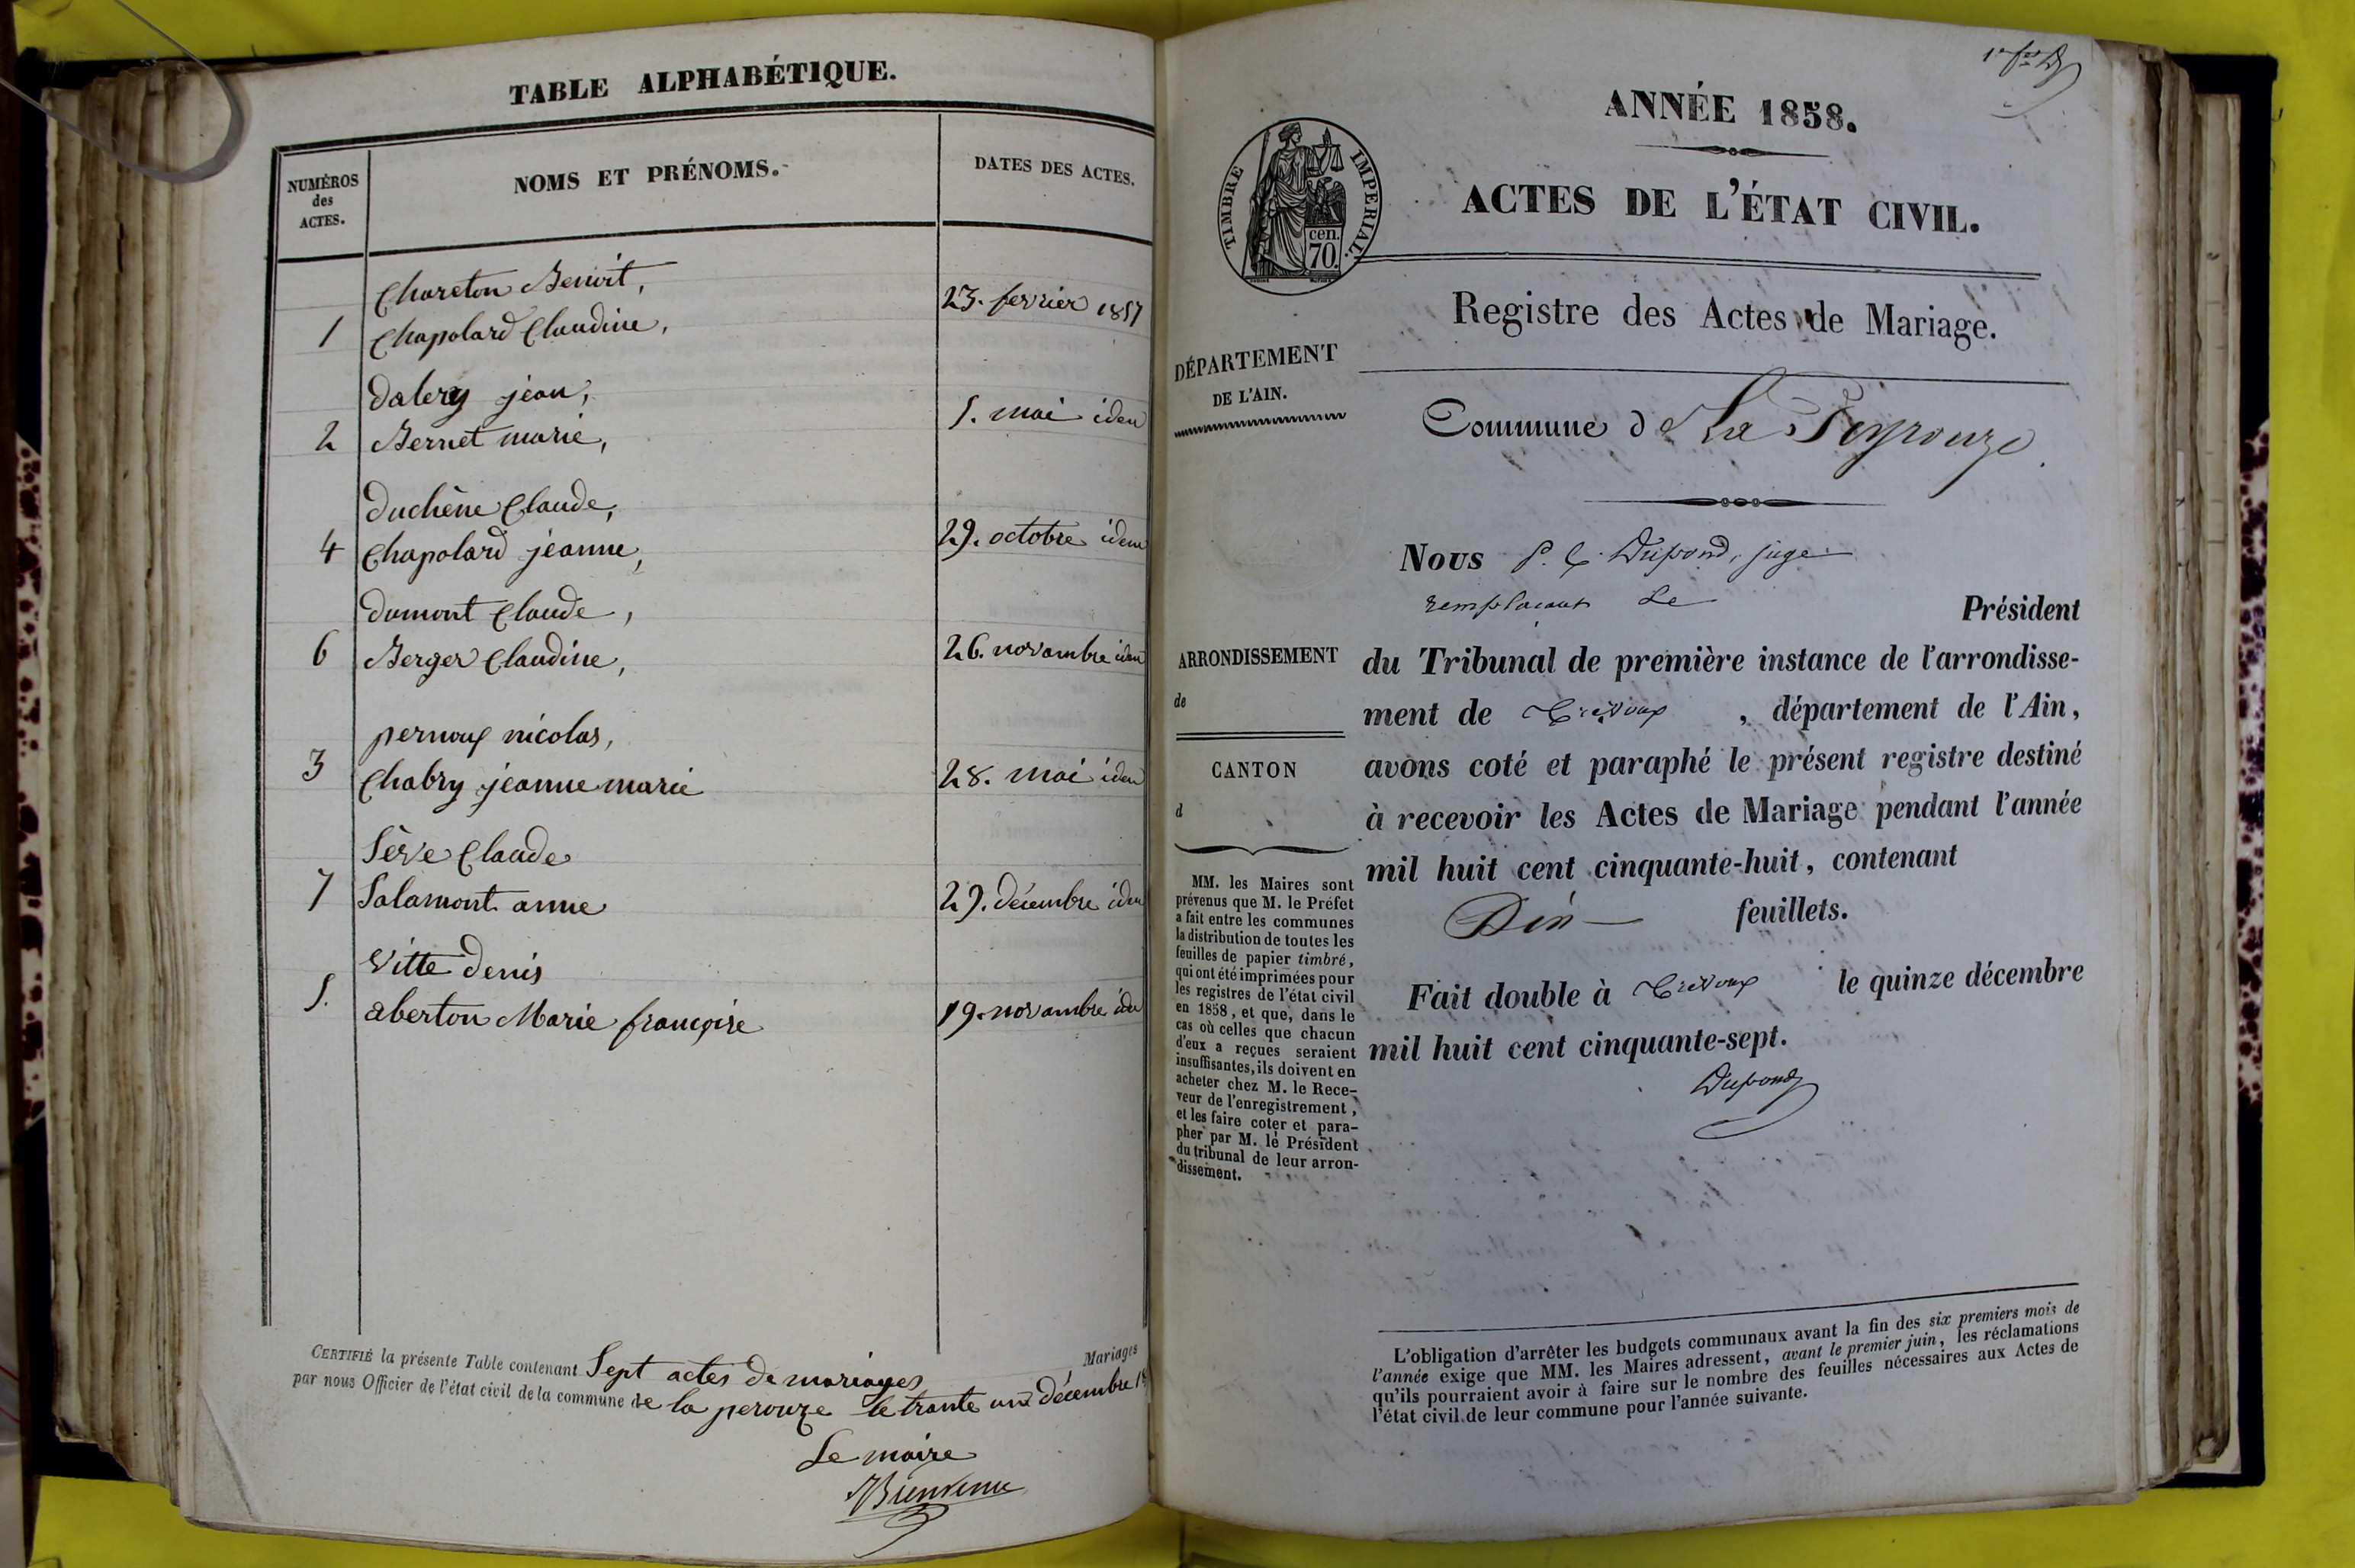 TABLE ALPHABÉTIQUE.
NUMÉROS des ACTES.
NOMS ET PRÉNOMS.
DATES DES ACTES.
Chareton Benoit,
1 Chapolard Claudine, 23. fevrier 1857
dalery jean,
2 Bernet marie, 5. mai idem
duchêne Claude,
4 Chapolard jeanne, 29. octobre idem
dumont Claude,
6 Berger Claudine, 26. novembre idem
pernoux nicolas,
3 Chabry jeanne marie 28. mai idem
Sève Claude
7 Salamont anne 29. décembre idem
Vitte denis
5. aberton Marie françoise 19. novembre idem
CERTIFIÉ la présente Table contenant Sept actes de mariages Mariages
par nous Officier de l'état civil de la commune de la perouze le trante un décembre
Le maire
Bienvenu
ANNÉE 1858.
TIMBRE IMPERIAL.
cen.
70.
ACTES DE L'ÉTAT CIVIL.
Registre des Actes de Mariage.
DÉPARTEMENT
DE L'AIN.
Commune d La Peyrouze
Nous Dupond, juge
remplaçant Le Président
ARRONDISSEMENT
de
CANTON
d
du Tribunal de première instance de l'arrondisse-
ment de Trévoux, département de l'Ain,
avons coté et paraphé le présent registre destiné
à recevoir les Actes de Mariage pendant l'année
mil huit cent cinquante-huit, contenant
Dix feuillets.
Fait double à Trévoux le quinze décembre
mil huit cent cinquante-sept.
Dupond
MM. les Maires sont
prévenus que M. le Préfet
a fait entre les communes
la distribution de toutes les
feuilles de papier timbré,
qui ont été imprimées pour
les registres de l'état civil
en 1858, et que, dans le
cas où celles que chacun
d'eux a reçues seraient
insuffisantes, ils doivent en
acheter chez M. le Rece-
veur de l'enregistrement,
et les faire coter et para-
pher par M. le Président
du tribunal de leur arron-
dissement.
L'obligation d'arrêter les budgets communaux avant la fin des six premiers mois de
l'année exige que MM. les Maires adressent, avant le premier juin, les réclamations
qu'ils pourraient avoir à faire sur le nombre des feuilles nécessaires aux Actes de
l'état civil de leur commune pour l'année suivante.